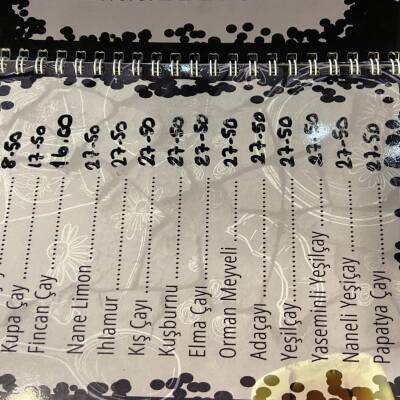 8.50
Kupa Çay 17-50
Fincan Çay 16.00
Nane Limon 27-50
Ihlamur 27-50
Kış Çayı 27-50
Kuşburnu 27-50
Elma Çayı 27-50
Orman Meyveli 27-50
Adaçayı 27-50
Yeşilçay 27-50
Yaseminli Yeşilçay 27-50
Naneli Yeşilçay 27-50
Papatya Çayı 27.50